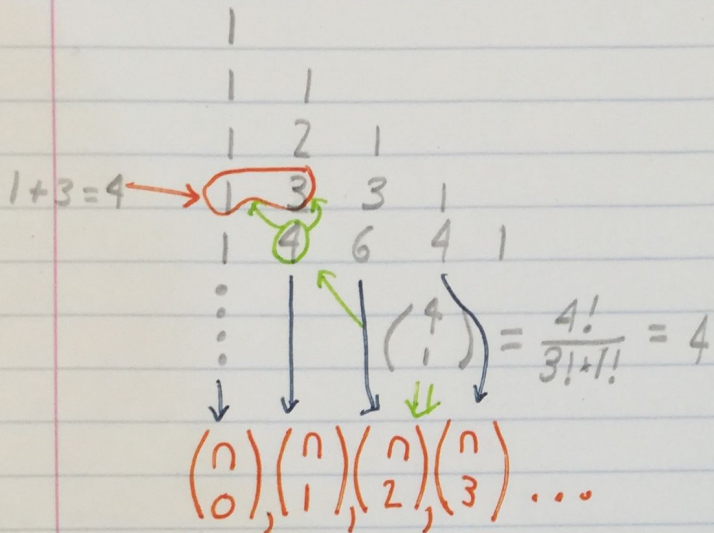 1
1 1
1 2 1
1+3=4 1 3 3 1
1 4 6 4 1
(4 1) = 4!/3!*1! = 4
(n 0), (n 1), (n 2), (n 3) ...